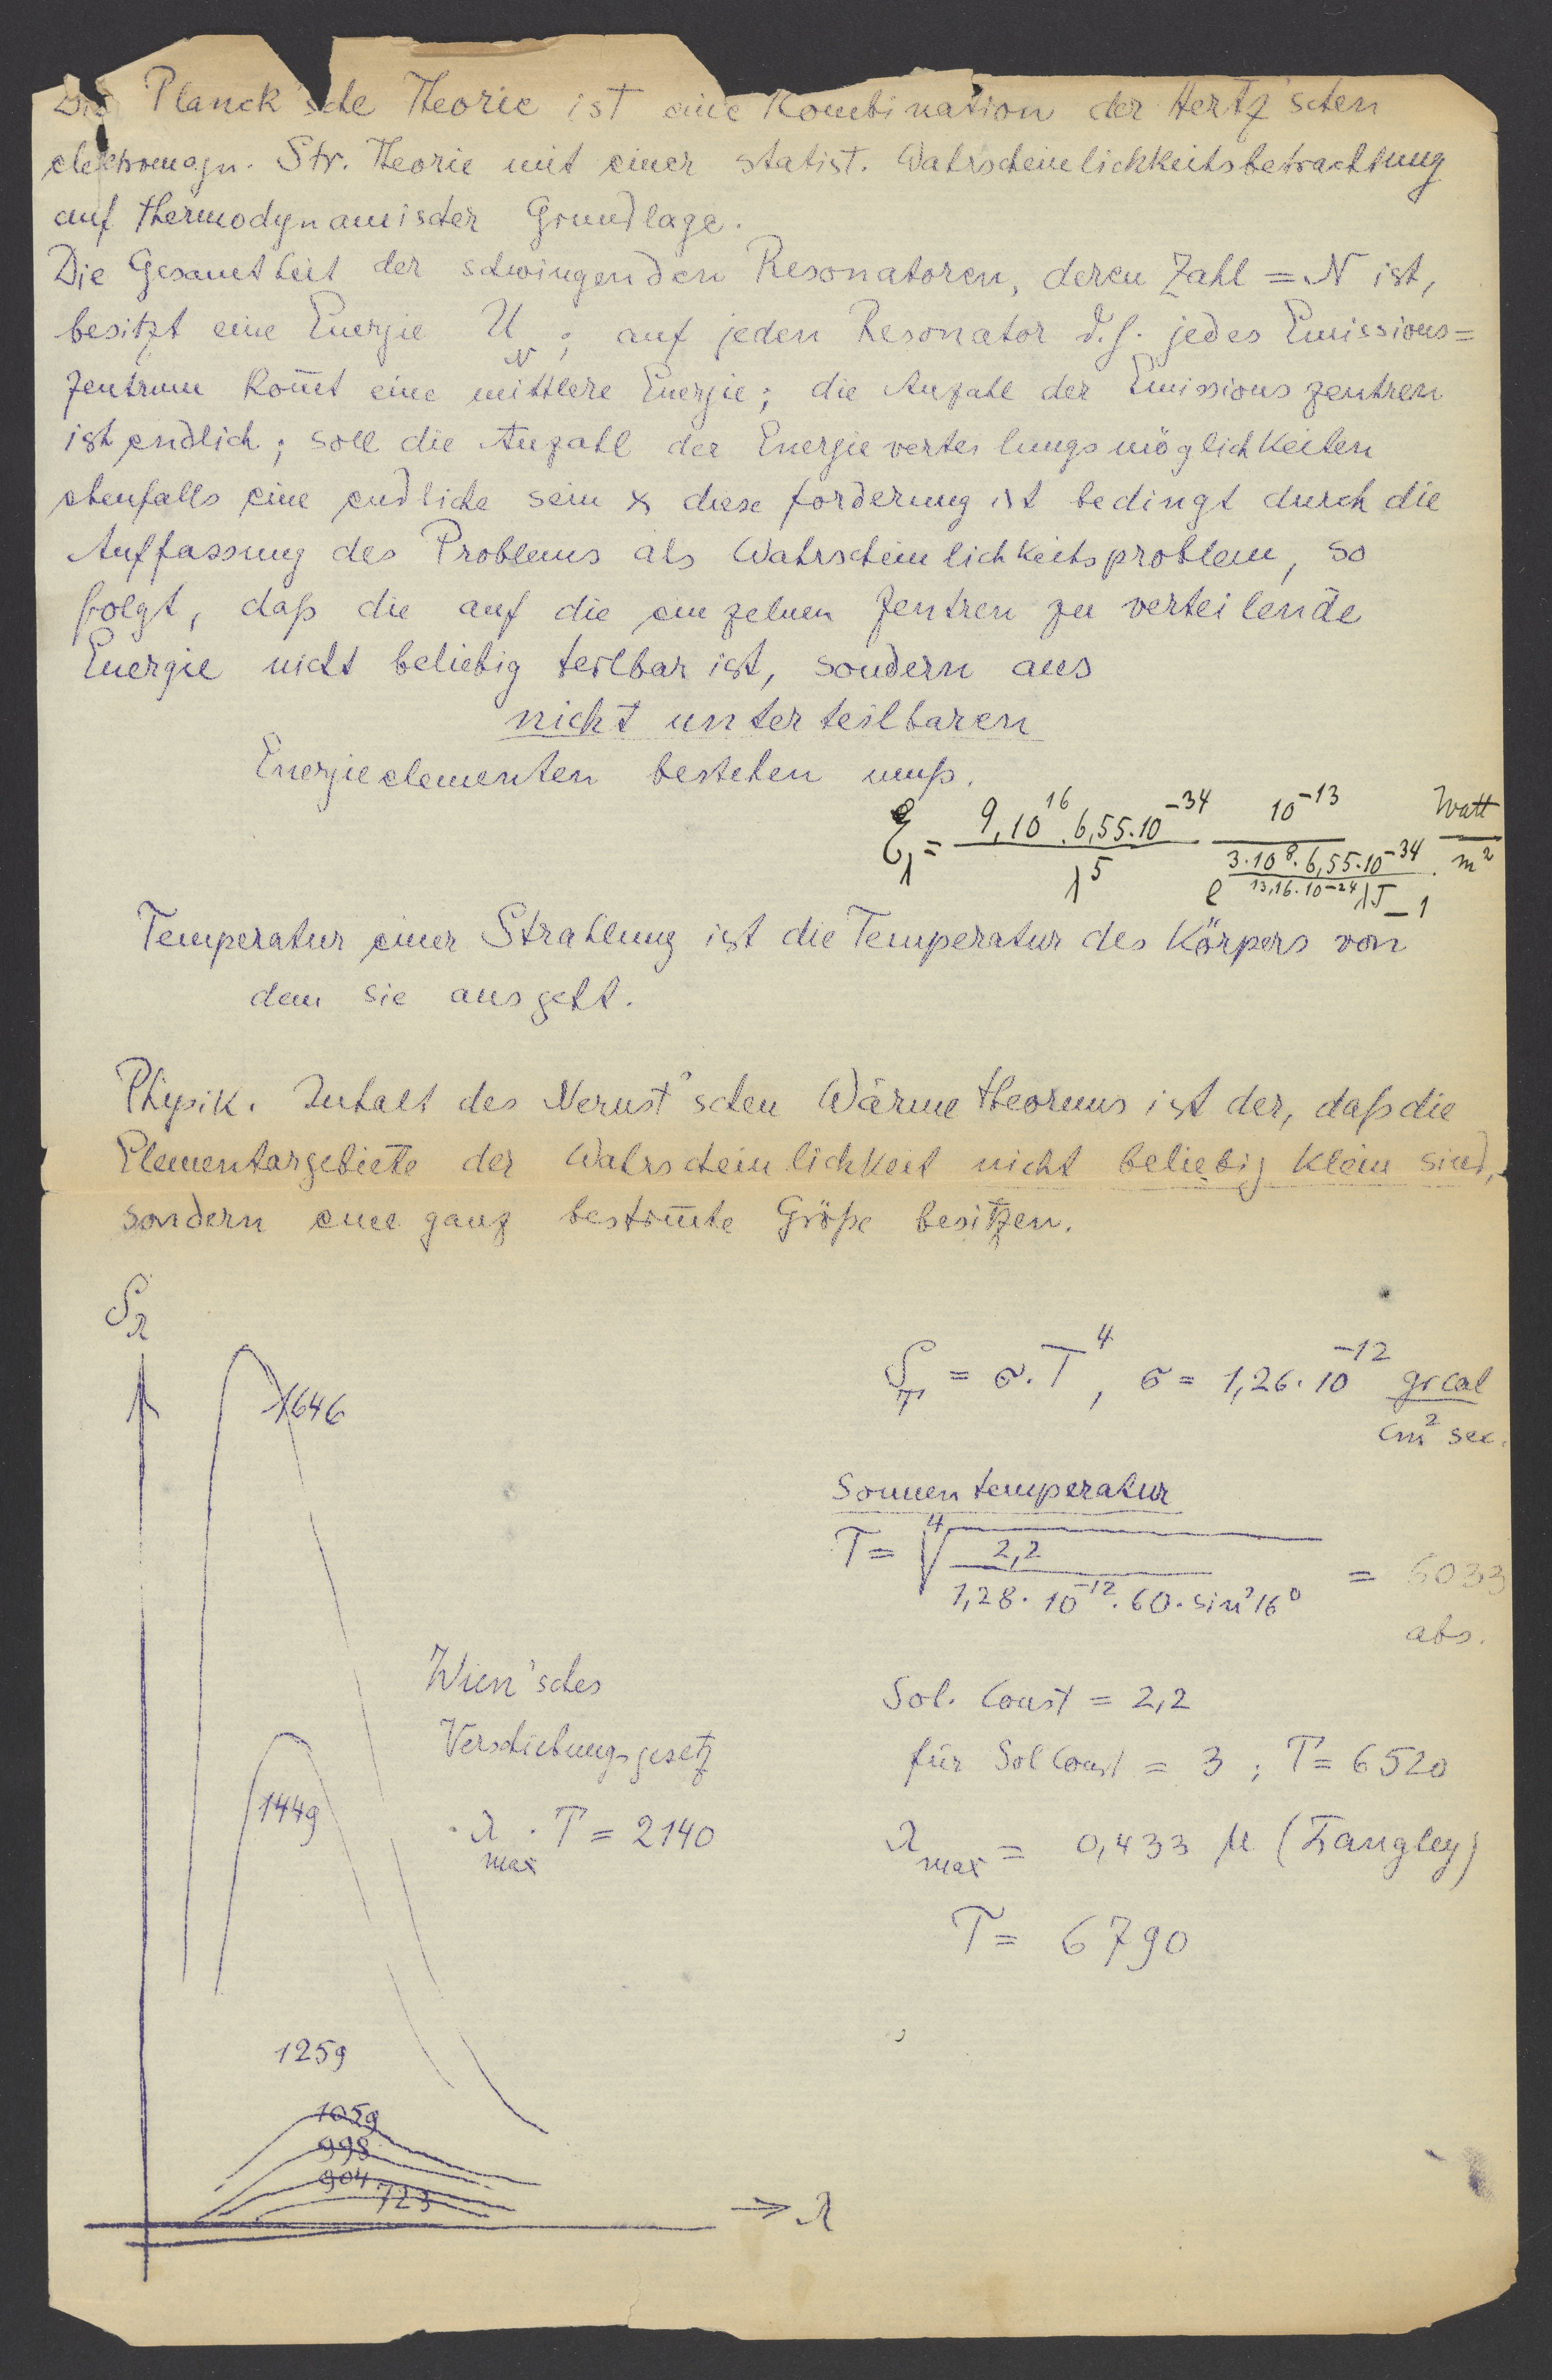 Die Planck'sche Theorie ist eine Kombination der Hertz'schen
elektromagn. Str. Theorie mit einer statist. Wahrscheinlichkeitsbetrachtung
auf thermodynamischer Grundlage.
Die Gesamtheit der schwingenden Resonatoren, deren Zahl = N ist,
besitzt eine Energie U_N ; auf jeden Resonator d.h. jedes Emissions=
zentrum kom̅t eine mittlere Energie; die Anzahl der Emissionszentren
ist endlich; soll die Anzahl der Energieverteilungsmöglichkeiten
ebenfalls eine endliche sein & diese Forderung ist bedingt durch die
Auffassung des Problems als Wahrscheinlichkeitsproblem, so
folgt, daß die auf die einzelnen Zentren zu verteilende
Energie nicht beliebig teilbar ist, sondern aus
nicht unterteilbaren
Energieelementen bestehen muß.
= 9,10^16 . 6,55.10^-34 / λ^5 10^-13 / e^(3.10^8 . 6,55.10^-34 / 13,16.10^-24 λT) - 1 . Watt / m^2
Temperatur einer Strahlung ist die Temperatur des Körpers von
dem sie ausgeht.
Physik. Inhalt des Nernst'schen Wärmetheorems ist der, daß die
Elementargebiete der Wahrscheinlichkeit nicht beliebig klein sind,
sondern eine ganz bestim̅te Größe besitzen.
S_λ
S_T = σ.T^4, σ = 1,26.10^-12 grcal / cm^2 sec.
1646
Sonnentemperatur
T = ∜(2,2 / 1,28.10^-12 . 60. sin^2 16^0) = 6033
abs.
Wien'sches
Verschiebungsgesetz
λ_max . T = 2140
Sol. Const = 2,2
für Sol Const = 3 ; T = 6520
λ_max = 0,433 μ (Langley)
T = 6790
1449
1259
1059
998
904
723
→ λ